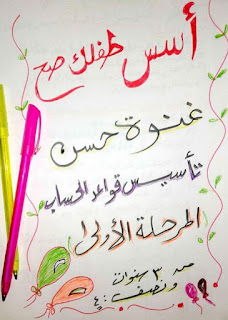 أسس طفلك صح
غنوة حسن
تأسيس قواعد الحساب
المرحلة الأولى
من ٣ سنوات
ونصف : ٤